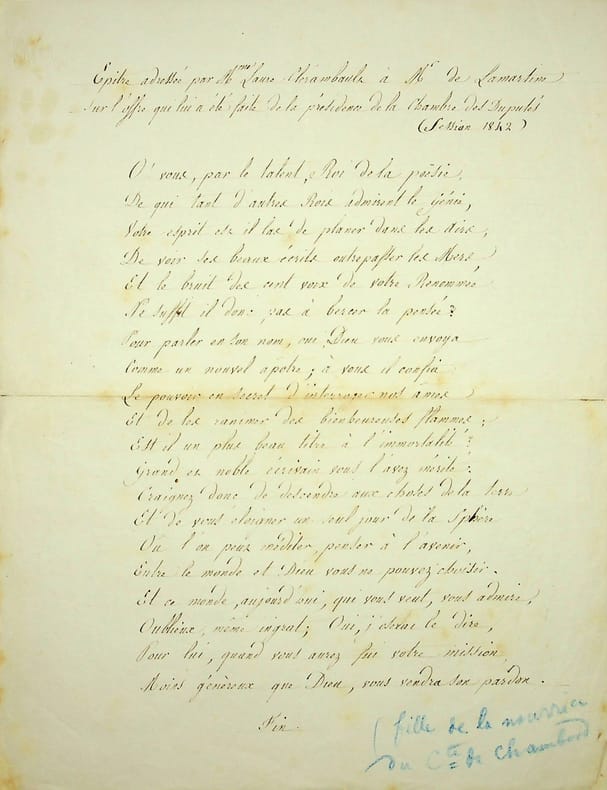 Epitre adressée par Mme Laure Clérambault à Mr de Lamartine
sur l'offre qui lui a été faite de la présidence de la Chambre des Députés
(Session 1842)
O' vous, par le talent, Roi de la poësie,
De qui tant d'autres Rois admirent le génie,
Votre esprit est il las de planer dans les airs,
De voir ses beaux écrits outrepasser les Mers
Et le bruit des cent voix de votre Renommée
Ne suffit il donc pas à bercer la pensée ?
Pour parler en son nom, oui, Dieu vous envoya
Comme un nouvel apotre ; à vous il confia
Le pouvoir en secret d'interroger nos âmes
Et de les ranimer des bienheureuses flammes ;
Est il un plus beau titre à l'immortalité ?
Grand et noble écrivain vous l'avez mérité.
Craignez donc de descendre aux choses de la terre
Et de vous éloigner un seul jour de la Sphère
Où l'on peut méditer, penser à l'avenir,
Entre le monde et Dieu vous ne pouvez choisir.
Et ce monde, aujourd'hui, qui vous veut, vous admire,
Oublieux, même ingrat ; Oui, j'oserai le dire,
Pour lui, quand vous aurez fui votre mission
Moins généreux que Dieu, vous vendra son pardon.
Fin.
(fille de la nourrice
du Cte de Chambord)